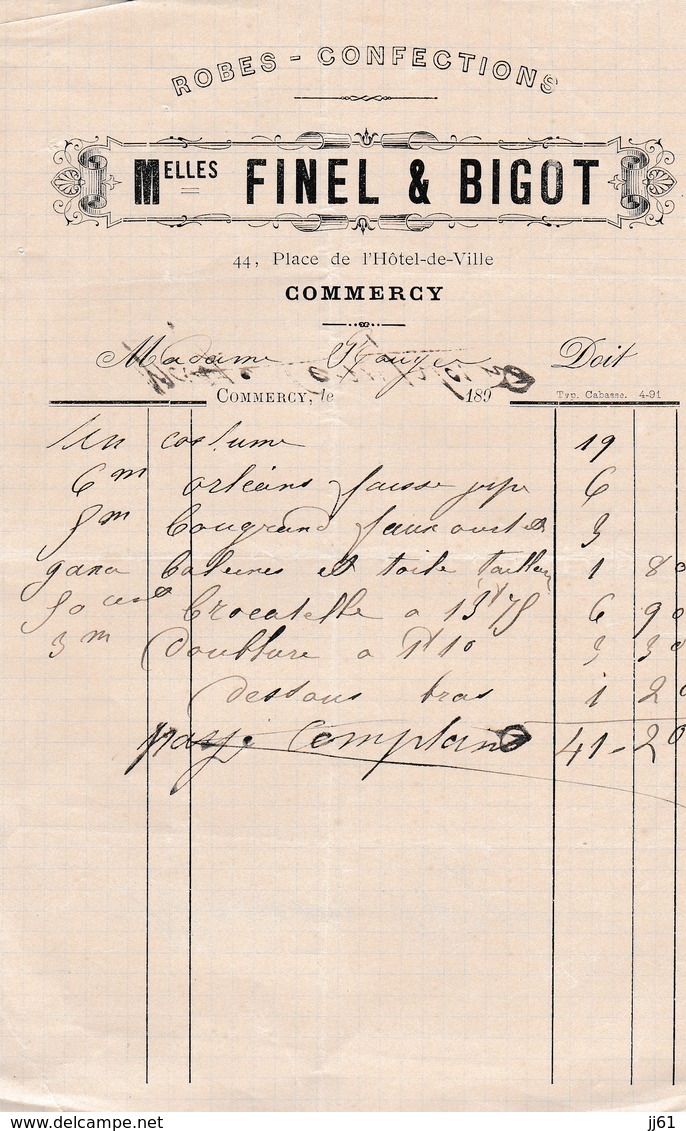 ROBES - CONFECTIONS
MELLES FINEL & BIGOT
44, Place de l'Hôtel-de-Ville
COMMERCY
Madame Doit
COMMERCY, le 189
Typ. Cabasse. 4-91
Un costume 19
6 m orléans fausse jupe 6
5 m 3
baleines et toile tailleur 1 80
50 cent brocatelle a 13f75 6 90
3 m doublure a 1f10 3 30
dessous bras 1 20
payé Comptant 41 - 20
delcampe.net
jj61